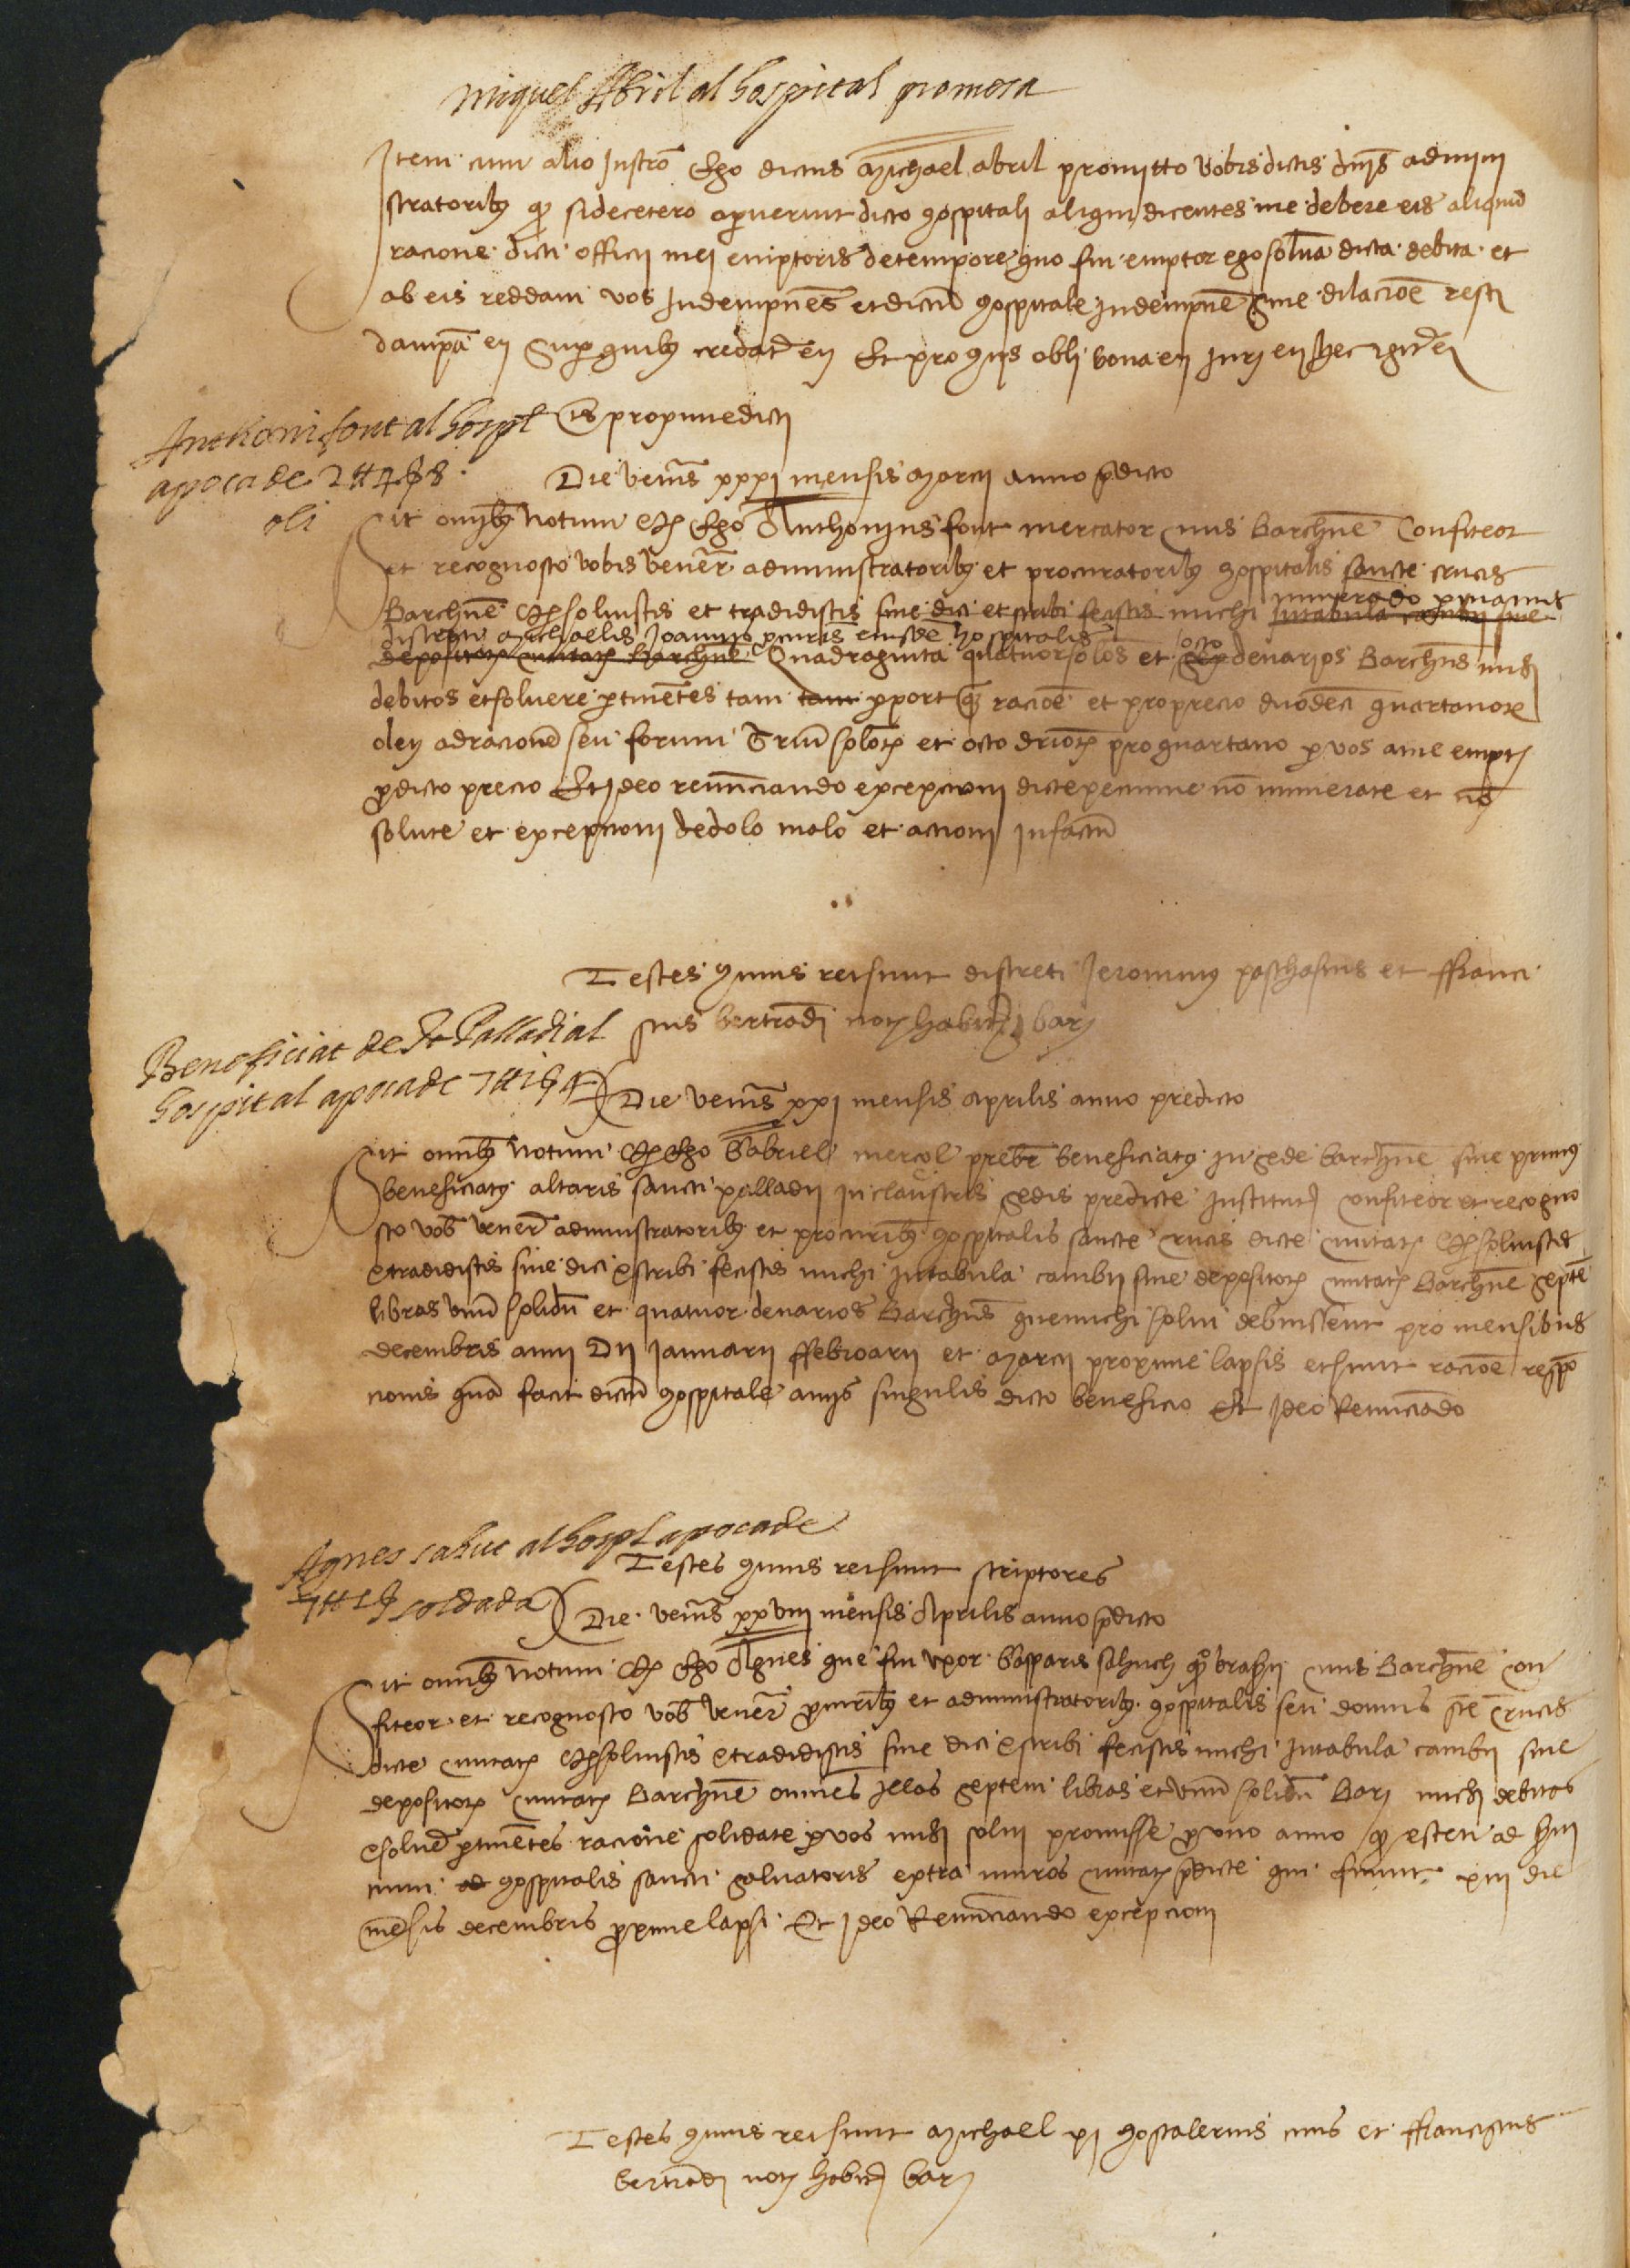 Miquel Abril al hospital promesa
Item cum alio Instro Ego dictus Michael abril promitto vobis dictis dnis admini
stratoribus q si decetero aparuerint dicto hospitali aliqui dicentes me debere eis aliquid
racione dicti officii mei emptoris de tempore quo fui emptor ego solvam dicta debita et
ab eis reddam vos Indempnes et dictum hospitale Indempne sine dilacione
dampna Super quibus credatur Et pro quis obli bona
proxime dicti
Anthoni font al hospl
apoca de 2 ₶ 4 ß 8
oli
Die veneris xxxi mensis Marcii anno predicto
Sit omnibus Notum q Ego Anthonius font mercator civis Barchne Confiteor
et recognosco vobis venerabilibus administratoribus et procuratoribus hospitalis sancte crucis
numerando
Barchne q solvistis et tradidistis sive dici et scribi fecistis michi in tabula cambii sive
discreti Michaelis Joannis eiusdem hospitalis
depositorum civitatis Barchne Quadraginta quatuor solidos et octo denarios Barchns michi
debitos et solvere pertinentes tam tam racione et pro precio duodecim quartanorum
olei ad racionem seu forum Trium solidorum et octo driorum pro quartano per vos a me emptis
predicto precio Et Ideo renunciando excepcioni dicte pecunie non numerate et non
solute et excepcioni de dolo malo et actioni in factum
Testes huius rei sunt discreti Jeronimus paschasius et ffranci
scus bertrandi not habitatores bar
Beneficiat de St Palladi al
hospital apoca de 7 ₶ 1 ß 4
Die veneris xxi mensis Aprilis anno predicto
Sit omnibus Notum q Ego Gabriel mercol prebr beneficiatus in sede barchne sive primus
beneficiatus altaris sancti palladii in claustris sedis predicte Instituti confiteor et recogno
sco vobis venerabilibus administratoribus et procuribus hospitalis sancte crucis dicte civitatis q solvistis
et tradidistis sive dici et scribi fecistis michi in tabula cambii sive depositorum civitatis Barchne septem
libras unum solidum et quatuor denarios Barchns que michi solvi debuissent pro mensibus
decembris anni Dii Januarii ffebroarii et Marcii proxime lapsis et sunt racione respon
cionis quam facit dictum hospitale annis singulis dicto beneficio Et Ideo Renunciando
Agnes saluc al hospl apoca de
7 ₶ 1 ß soldada
Testes huius rei sunt scriptores
Die veneris xxviii mensis Aprilis anno predicto
Sit omnibus Notum q Ego Agnes que fui uxor Gasparis saluch q brasii civis Barchne con
fiteor et recognosco vobis venerabilibus procuribus et administratoribus hospitalis seu domus ste Crucis
dicte civitatis q solvistis et tradidistis sive dici et scribi fecistis michi in tabula cambii sive
depositorum civitatis Barchne omnes Illas septem libras et unum solidum Bar michi debitas
et solvere pertinentes racione solidate per vos michi solvi promisse pro uno anno q esteti ad servi
cium ad hospitalis sancti salvatoris extra muros civitatis predicte qui finivit xiii die
mensis decembris proxime lapsi Et Ideo Renunciando excepcioni
Testes huius rei sunt Michael pi hostalerius civis et ffranciscus
bertrandi not habitatores bar